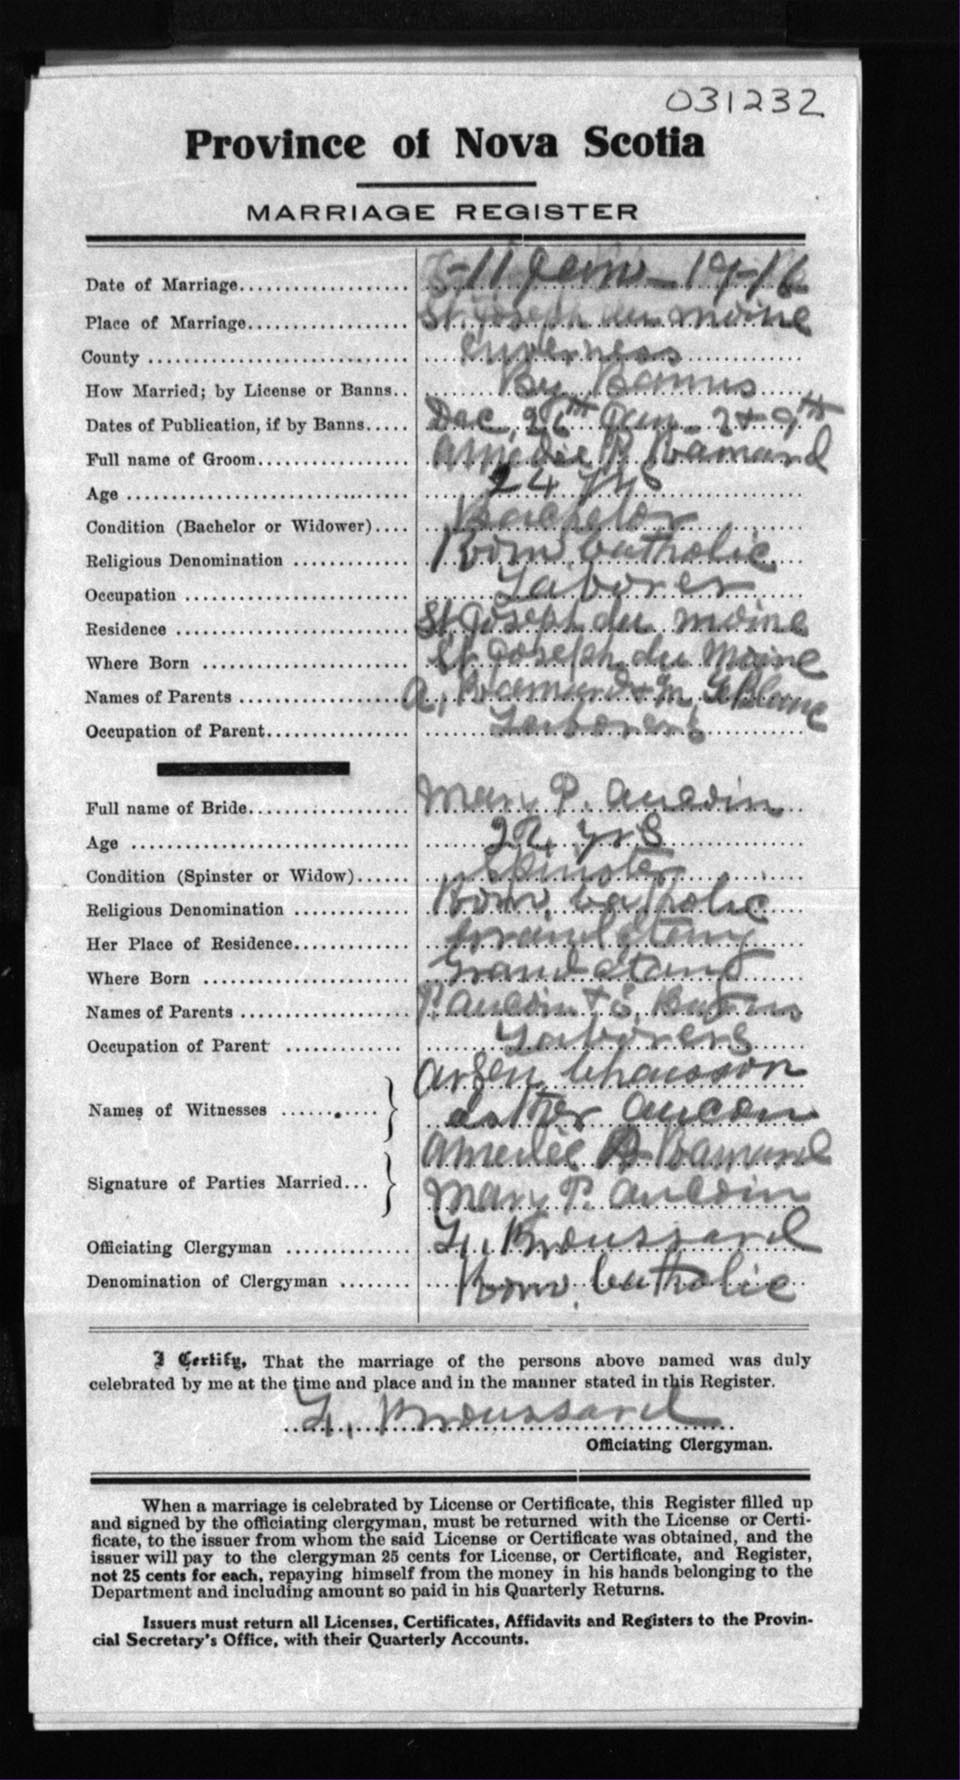 031232
Province of Nova Scotia
MARRIAGE REGISTER
Date of Marriage 11 Janv 1916
Place of Marriage St. Joseph du moine
County Inverness
How Married; by License or Banns By Banns
Dates of Publication, if by Banns Dec, 26th Jan. 2 & 9th
Full name of Groom Amedee P. Ramard
Age 24 yrs
Condition (Bachelor or Widower) Bachelor
Religious Denomination Rom. Catholic
Occupation Laborer
Residence St Joseph du moine
Where Born St Joseph du Moine
Names of Parents A, Ramard & M, LeBlanc
Occupation of Parent Laborers
Full name of Bride Mary P. Aucoin
Age 22 yrs
Condition (Spinster or Widow) Spinster
Religious Denomination Rom. Catholic
Her Place of Residence Grand Etang
Where Born Grand Etang
Names of Parents P. Aucoin & E.
Occupation of Parent Laborers
Names of Witnesses Arsen Chiasson
Esther Aucoin
Signature of Parties Married Amedee Ramard
Mary P. Aucoin
Officiating Clergyman Broussard
Denomination of Clergyman Rom. Catholic
I Certify, That the marriage of the persons above named was duly
celebrated by me at the time and place and in the manner stated in this Register.
Broussard
Officiating Clergyman.
When a marriage is celebrated by License or Certificate, this Register filled up
and signed by the officiating clergyman, must be returned with the License or Certi-
ficate, to the issuer from whom the said License or Certificate was obtained, and the
issuer will pay to the clergyman 25 cents for License, or Certificate, and Register,
not 25 cents for each, repaying himself from the money in his hands belonging to the
Department and including amount so paid in his Quarterly Returns.
Issuers must return all Licenses, Certificates, Affidavits and Registers to the Provin-
cial Secretary's Office, with their Quarterly Accounts.